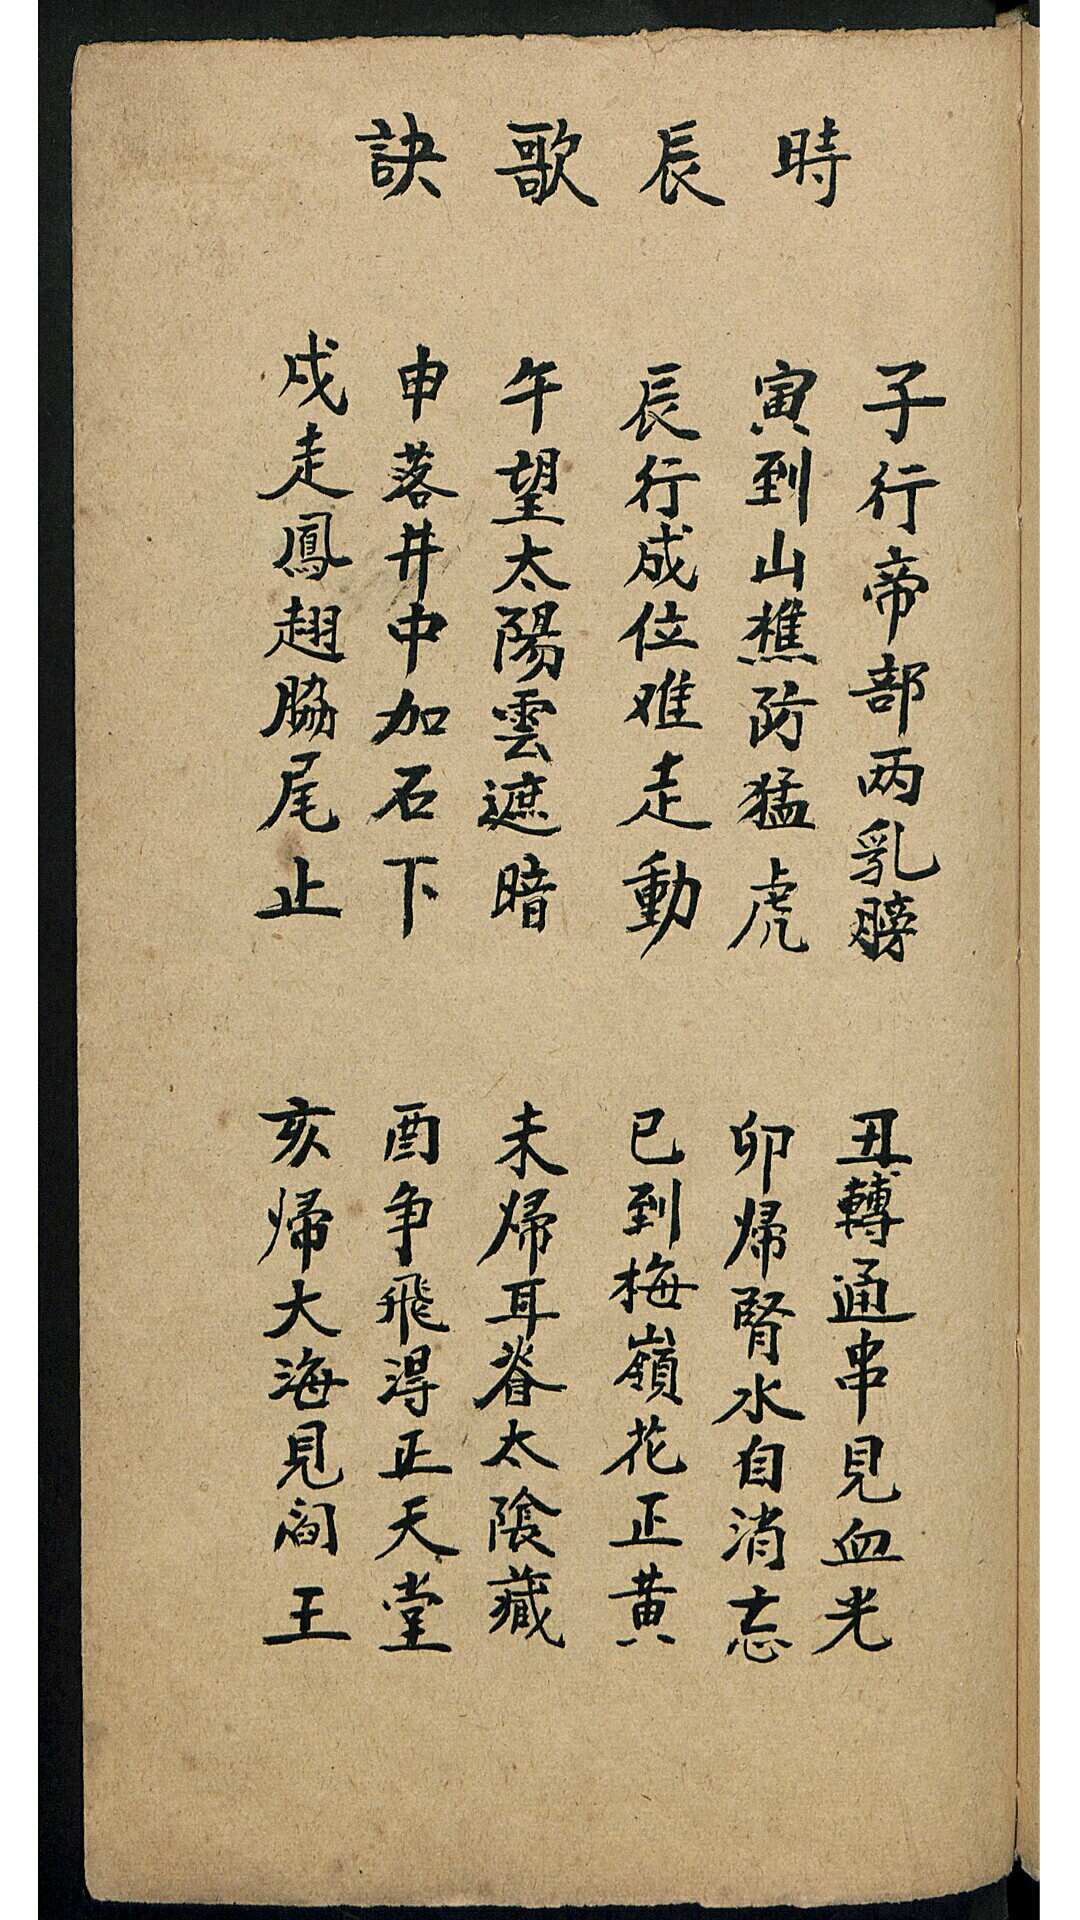 時辰歌訣
子行帝部两乳膀
丑轉通串見血光
寅到山樵防猛虎
卯帰腎水自消忘
辰行成位难走動
巳到梅嶺花正黄
午望太陽雲遮暗
未帰耳脊太陰藏
申落井中加石下
酉争飛得正天堂
戍走鳳翅脇尾止
亥帰大海見阎王